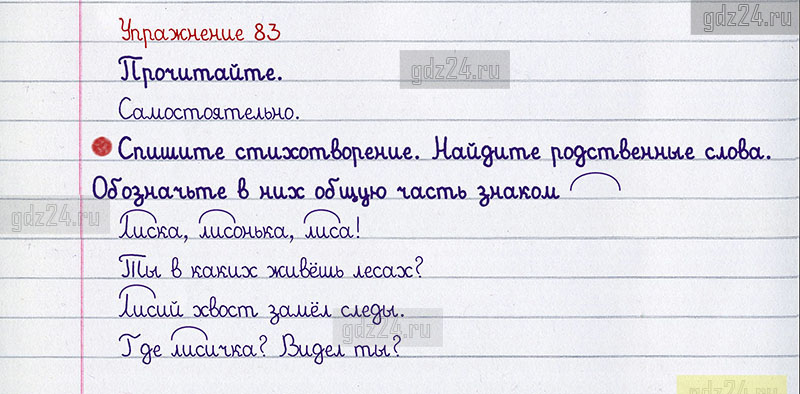 gdz24.ru
Упражнение 83
Прочитайте.
gdz24.ru
Самостоятельно.
Спишите стихотворение. Найдите родственные слова.
Обозначьте в них общую часть знаком
gdz24.ru
Лиска, лисонька, лиса!
Ты в каких живёшь лесах?
Лисий хвост замёл следы.
gdz24.ru
Где лисичка? Видел ты?
gdz24.ru